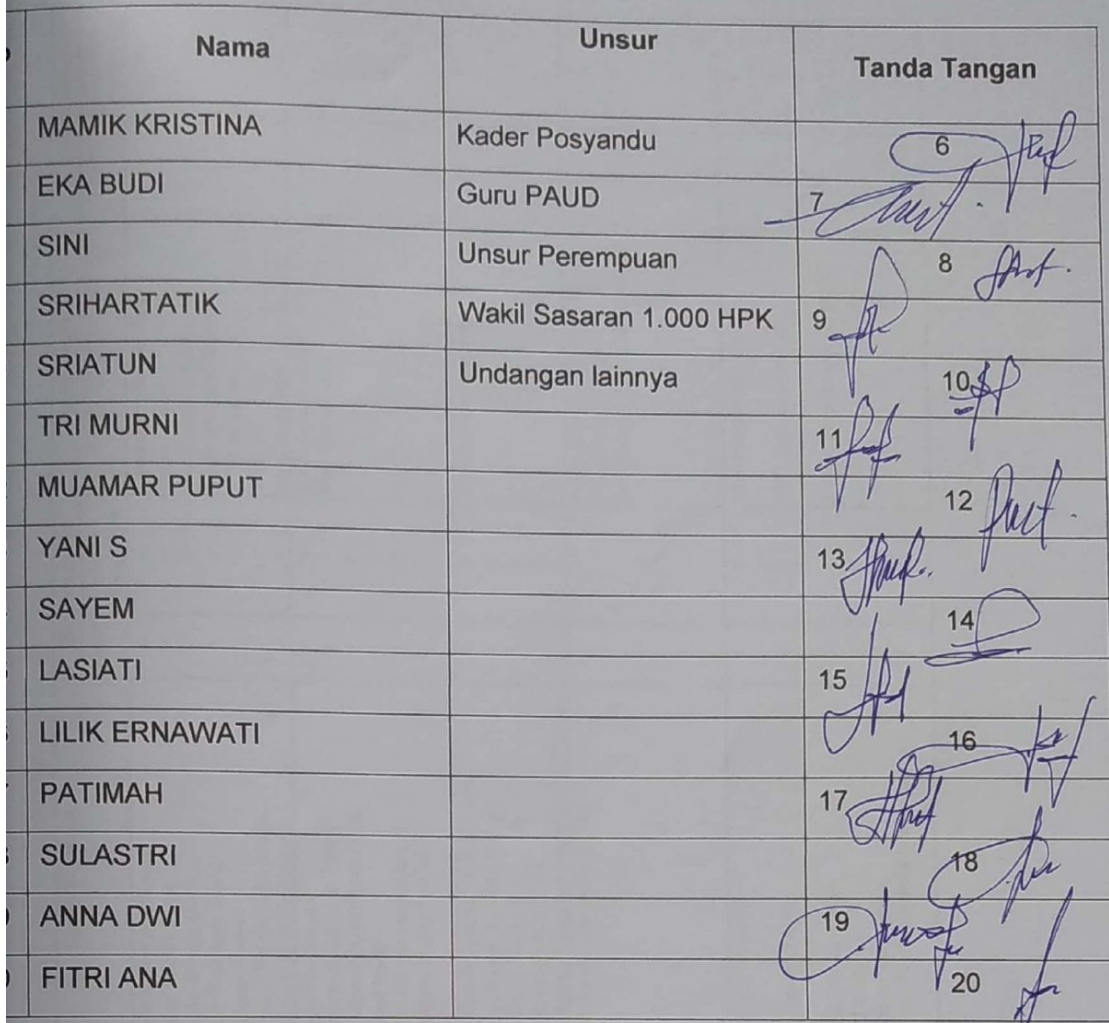 Nama Unsur Tanda Tangan
MAMIK KRISTINA Kader Posyandu 6
EKA BUDI Guru PAUD 7
SINI Unsur Perempuan 8
SRIHARTATIK Wakil Sasaran 1.000 HPK 9
SRIATUN Undangan lainnya 10
TRI MURNI 11
MUAMAR PUPUT 12
YANI S 13
SAYEM 14
LASIATI 15
LILIK ERNAWATI 16
PATIMAH 17
SULASTRI 18
ANNA DWI 19
FITRI ANA 20